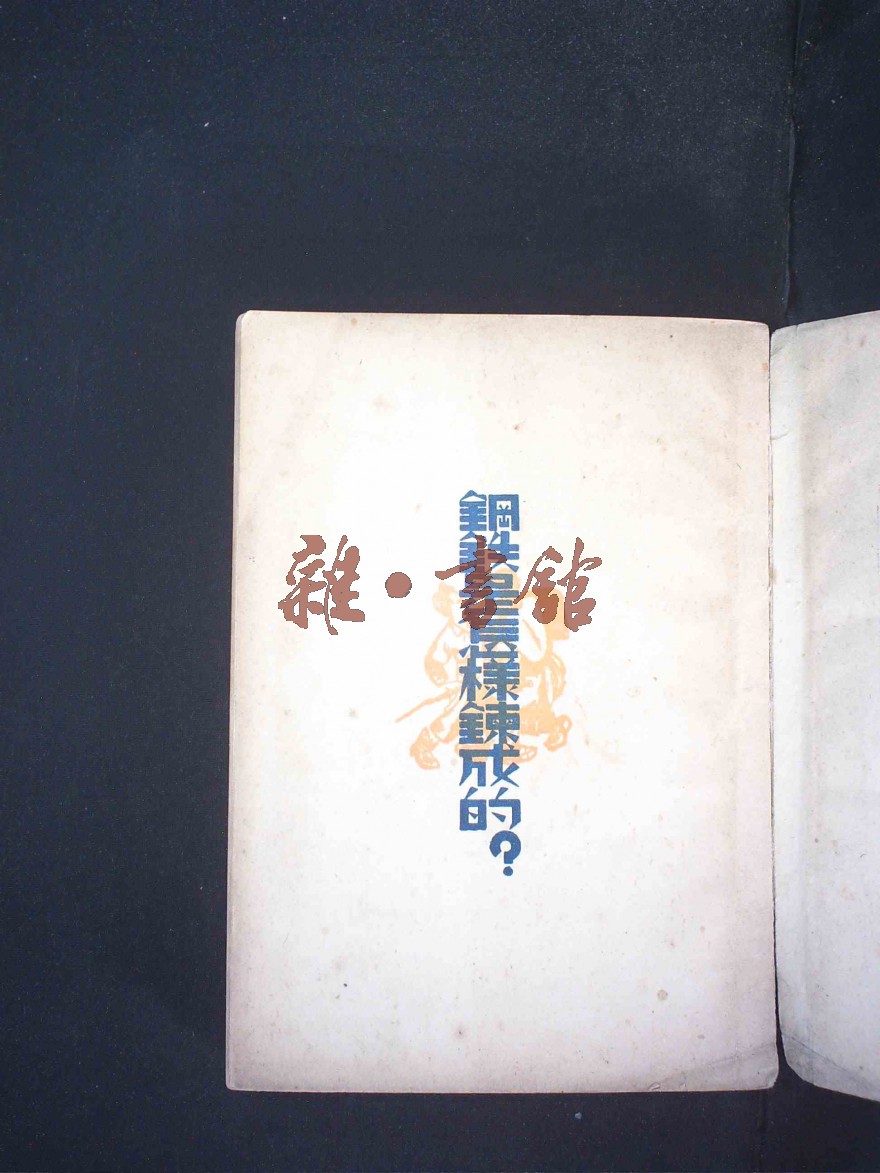 鋼鉄是怎樣鍊成的?
雜·書舘